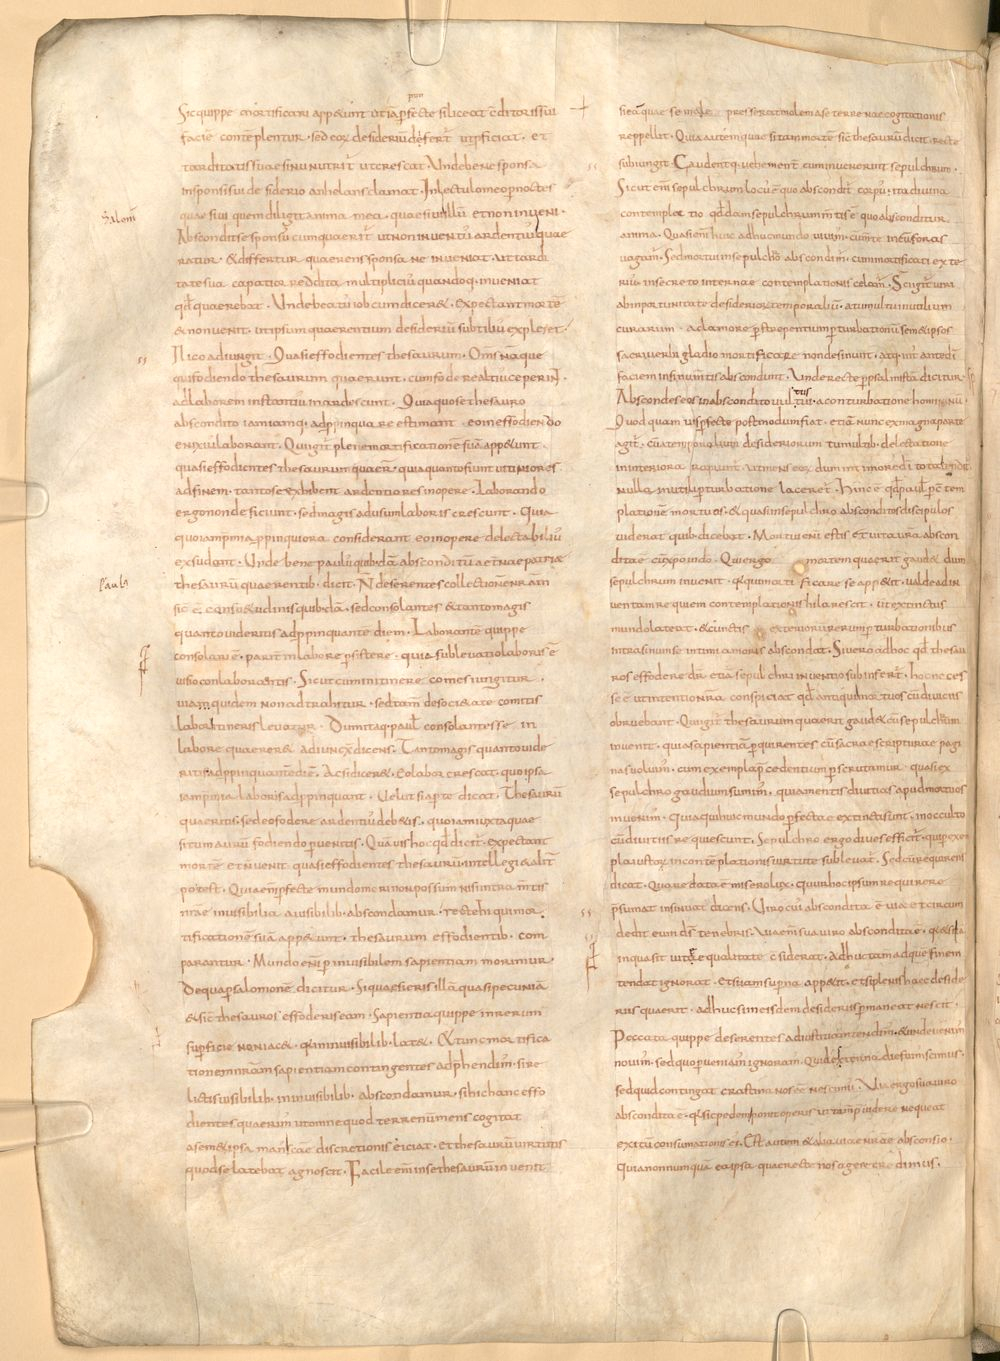 Sic quippe mortificari app&unt ut iā pfecte si liceat c̄ditoris sui
facie contēplentur · sed eoꝝ desideriū differt̄ ut pficiat · et
tarditatis suae sinu nutrit̄ ut crescat · Unde bene sponsa
in sponsi sui desiderio anhelans clamat · In lectulo meo p noctes
quaesivi quem diligit anima mea · quaesivi illū et non inveni ·
Abscondit se sponsus cum quaerit̄ ut non inventus ardentius quae
ratur · & differtur quaerens sponsa ne inveniat · ut tardi
tate sua capatior reddita multiplicius quandoq· inveniat
qd̄ quaerebat · Unde beatus iob cum dicer& · Expectant mortē
& non venit · ut ipsum quaerentium desideriū subtilius exprimer&
Ilico adiungit · Quasi effodientes thesaurum · Om̄s nāque
qui fodiendo thesaurum quaerunt · cum fodere altius ceperint
ad laborem instantius inardescunt · Quia quo se thesauro
abscondito iam iamq· adp̄pinquare estimant · eo in effodiendo
enixius laborant · Qui igit̄ plene mortificationē suā app&unt ·
quasi effodientes thesaurum quaer̄ · quia quanto fiunt viciniores
ad finem · tanto se exhibent ardentiores in opere · Laborando
ergo non deficiunt · sed magis ad usum laboris crescunt · Quia
quo iam p̄mia ppinquiora considerant eo in opere delectabilius
exsudant · Unde bene paulus quibdā absconditū aet̄nae patriae
thesaurū quaerentib· dicit · N̄ deserentes collectionē nram
sic ē consu&udinis quibdā · sed consolantes & tanto magis
quanto videritis adp̄pinquantē diem · Laborantē quippe
consolari ē · parit̄ in labore psistere · quia sublevatio laboris ē
visio conlaborantis · Sicut cum in itinere comes iungitur
via quidem non adtrahitur · sed tam̄ de soci&ate comitis
labor itineris levatur · Dum itaq· paulus consolantes se in
labore quaerer& adiunxit dicens · Tanto magis quanto vide
ritis adp̄pinquantē diē · Ac si dicer& · Eo labor crescat · quo ipsa
iam p̄mia laboris adp̄pinquant · Velut si apte dicat · Thesaurū
quaeritis · sed eo fodere ardentius deb&is · quo iam iuxta quae
situm aurū fodiendo pvenitis · Quāvis hoc qd̄ dicit̄ · expectant
mortē et n̄ venit quasi effodientes thesaurū intellegi & alit̄
potest · Quia em̄ pfecte mundo mori non possum· nisi intra m̄tis
nr̄ae invisibilia a visibilib· abscondamur · recte hi qui mor
tificationē suā app&unt · thesaurum effodientib· com
parantur · Mundo em̄ p invisibilem sapientiam morimur ·
De qua p salomonē dicitur · Si quaesieris illā quasi pecuniā
& sic thesauros effoderis eam · Sapientia quippe in rerum
supficie non iac& · qa in invisibilib· lat& · & tunc mortifica
tionem nr̄am sapientiam contingentes adp̄hendim· si re
lictis visibilib· in invisibilib· abscondamur · si hic hanc effo
dientes quaerim· ut omne quod terrenum mens cogitat
a sem&ipsa manu sc̄ae discretionis eiciat · et thesaurū virtutis
quod se latebat agnoscit · Facile em̄ in se thesaurū invenit
Salom̄
Paulus
si ea quae se male presserat molem a se terrenae cogitationis
reppellit · Quia autem quaesitam mortē sic thesaurū dicit · recte
subiungit · Gaudentq· vehement̄ cum invenerint sepulchrum ·
Sicut em̄ sepulchrum locus ē quo abscondit̄ corpus · ita divina
contemplatio qd̄dam sepulchrum m̄tis ē quo absconditur
anima · Quasi em̄ huic adhuc mundo vivim· cum m̄te in eū foras
vagam̄ · Sed mortui in sepulchro abscondim̄ · cum mortificati exte
rius in secreto internae contemplationis celam̄ · Sc̄i igit̄ viri
ab inportunitate desiderioꝝ temporaliū · a tumultu inutilium
curarum · a clamore pstrepentium pturbationū sem&ipsos
sacri verbi gladio mortificare non desinunt · atq· int̄ ante dī
faciem in sinu m̄tis abscondunt · Unde recte p psalmistā dicitur ·
Abscondes eos in abscondito vultus tui · a conturbatione hominum ·
Quod quamvis pfecte postmodum fiat · etiā nunc ex magna parte
agit̄ · cū a temporalium desideriorum tumultib· delectatione
in interiora rapiunt̄ · ut mens eoꝝ dum in amorē dī tota tendit̄
nulla inutili pturbatione laceret̄ · Hinc ē qd̄ paulus p cōtem
platione mortuos · & quasi in sepulchro absconditos discipulos
viderat quib· dicebat · Mortui eni estis et vita vr̄a abscon
dita ē cū xpo in dō · Qui ergo mortem quaerit gaud& dum
sepulchrum invenit · qa qui mortificare se app&it · valde ad in
ventam requiem contemplationis hilarescit · ut extinctus
mundo lateat · & cunctis exteriorū rerum pturbationibus
intra sinum se intimi amoris abscondat · Si vero adhoc qd̄ thesau
ros effodere dr̄ · etiā sepulchri inventio subinsert̄ · hoc nc̄es
se ē ut intentio nr̄a conspiciat qd̄ antiqui mortuos cū divitiis
obruebant · Qui igit̄ thesaurum quaerit gaud& cū sepulchrum
invenit · quia sapientiā pquirentes cū sacrae scripturae pagi
nas volvim· cum exempla p̄cedentium pscrutamur · quasi ex
sepulchro gaudium sumim· quia mentis divitias apud mortuos
invenim· quia qui huic mundo pfecte extincti sunt · in occulto
cū divitiis requiescunt · Sepulchro ergo dives efficit̄ · qui p exem
pla iustoꝝ in contēplationis virtute sublevat̄ · Sed cū requirens
dicat · Quare data ē misero lux · cur hoc ipsum requirere
p̄sumat insinuat dicens · Viro cuius abscondita ē via et circum
dedit eum ds̄ tenebris · Via em̄ sua viro abscondita ē · qa & si iā
in qua sit vitae qualitate c̄siderat · Adhuc tam̄ ad quē finem
tendat ignorat · Etsi iam supna app&it · etsi plenis haec deside
riis quaerit · adhuc si in eisdem desideriis pmaneat nescit ·
Peccata quippe deserentes ad iustitiam tendim· & unde venim·
novim· sed quo pveniam· ignoram· · Quid externa die sum· scimus ·
sed quid contingat crastina nos ēē nescim· · Via ergo sua viro
abscondita ē · qa sic pedem ponit operis ut tam̄ p̄videre nequeat
exitū consummationis ei· · Est autem & alia viae nr̄ae absconsio ·
Quia nonnunquā ea ipsa quae recte nos agere credimus ·